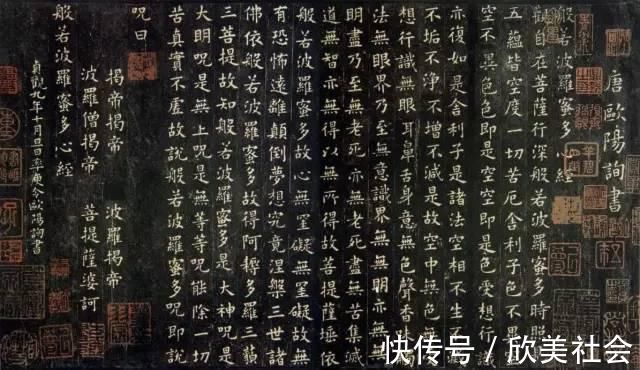 唐歐陽詢書
般若波羅蜜多心經
觀自在菩薩行深般若波羅蜜多時照
五蘊皆空度一切苦厄舍利子色不異
空不異色色即是空空即是色受想行
亦復如是舍利子是諸法空相不生不
不垢不淨不增不減是故空中無色無
想行識無眼耳鼻舌身意無色聲香
法無眼界乃至無意識界無無明亦無
明盡乃至無老死亦無老死盡無苦集滅
道無智亦無得以無所得故菩提薩埵依
般若波羅蜜多故心無罣礙無罣礙故無
有恐怖遠離顛倒夢想究竟涅槃三世諸
佛依般若波羅蜜多故得阿耨多羅三藐
三菩提故知般若波羅蜜多是大神呪是
大明呪是無上呪是無等等呪能除一切
苦真實不虛故說般若波羅蜜多呪即說
呪曰
揭帝揭帝 波羅揭帝
波羅僧揭帝 菩提薩婆訶
般若波羅蜜多心經
貞觀九年十月旦日率更令歐陽詢書
快传号 / 欣美社会